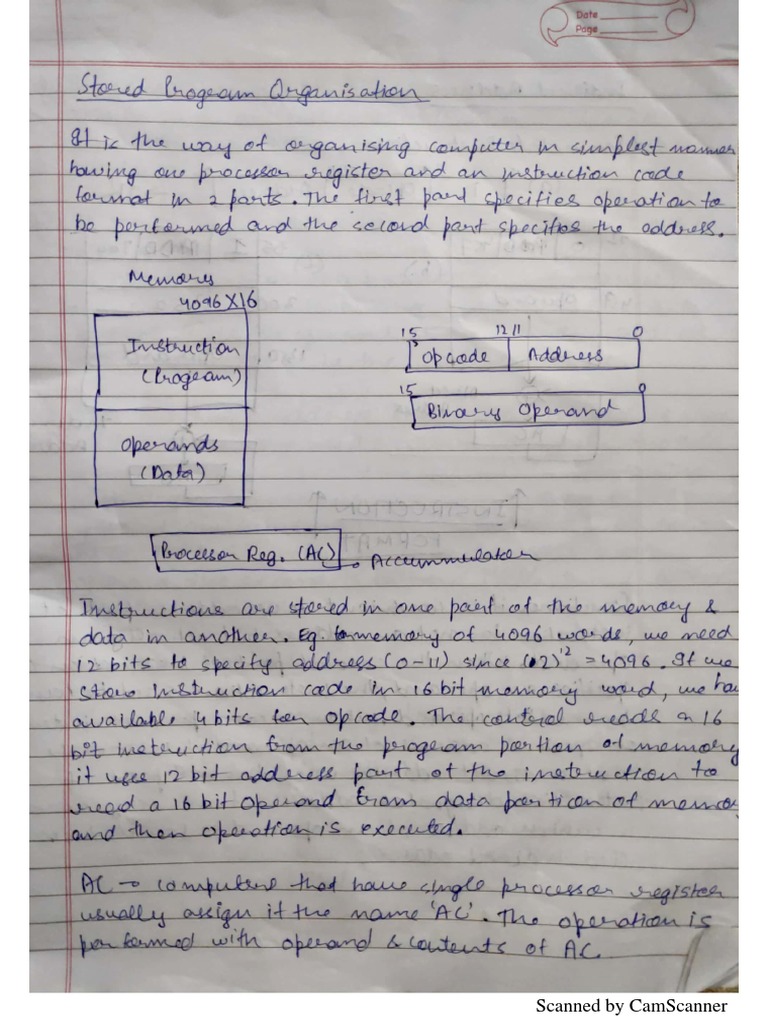 Date
Page
Stored Program Organisation
It is the way of organising computer in simplest manner
having one processor register and an instruction code
format in 2 parts. The first part specifies operation to
be performed and the second part specifies the address.
Memory
4096 X 16
Instruction
(Program)
Operands
(Data)
15 12 11 0
Opcode Address
15 0
Binary Operand
Processor Reg. (AC) → Accummulator
↑ INSTRUCTION ↑
FORMAT
Instructions are stored in one part of the memory &
data in another. Eg. for memory of 4096 words, we need
12 bits to specify address (0-11) since (2)¹² = 4096. If we
store instruction code in 16 bit memory word, we have
available 4 bits for opcode. The control reads a 16
bit instruction from the program portion of memory
it uses 12 bit address part of the instruction to
read a 16 bit operand from data portion of memory
and then operation is executed.
AC → computers that have single processor register
usually assign it the name 'AC'. The operation is
performed with operand & contents of AC.
Scanned by CamScanner